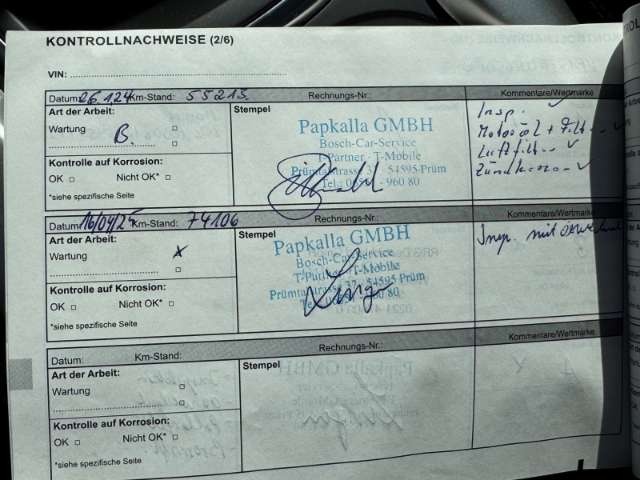 KONTROLLNACHWEISE (2/6)
VIN:
Datum: 26.1.24 Km-Stand: 55213 Rechnungs-Nr.: Kommentare/Wertmarke
Art der Arbeit: Stempel
Wartung B.
Papkalla GMBH
Bosch-Car-Service
T-Partner - T-Mobile
Prümtalstrasse 37 · 54595 Prüm
Tel.: - 960 80
Insp. ✓
Motoröl + Filt. ✓
Luftfilt. ✓
Zündkerzen ✓
Kontrolle auf Korrosion:
OK □ Nicht OK* □
*siehe spezifische Seite
Datum: 16/04/25 Km-Stand: 74106 Rechnungs-Nr.: Kommentare/Wertmarke
Art der Arbeit: Stempel
Wartung x
Papkalla GMBH
Bosch-Car-Service
T-Partner - T-Mobile
Prümtalstrasse 37 · 54595 Prüm
960 80
Insp. mit
Kontrolle auf Korrosion:
OK □ Nicht OK* □
*siehe spezifische Seite
Datum: Km-Stand: Rechnungs-Nr.: Kommentare/Wertmarke
Art der Arbeit: Stempel
Wartung □
Kontrolle auf Korrosion:
OK □ Nicht OK* □
*siehe spezifische Seite